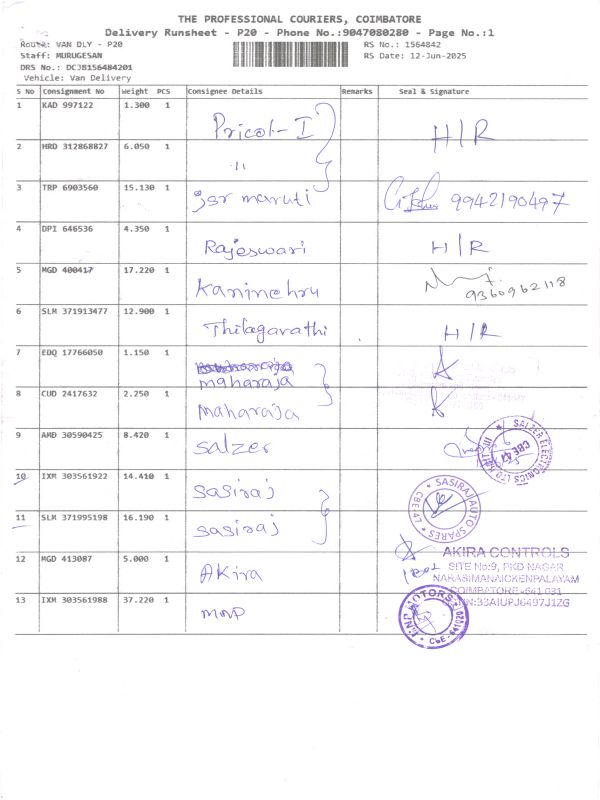 THE PROFESSIONAL COURIERS, COIMBATORE
Delivery Runsheet - P20 - Phone No.:9047080280 - Page No.:1
Route: VAN DLY - P20 RS No.: 1564842
Staff: MURUGESAN RS Date: 12-Jun-2025
DRS No.: DCJB156484201
Vehicle: Van Delivery
S No Consignment No Weight PCS Consignee Details Remarks Seal & Signature
1 KAD 997122 1.300 1 Pricol-I H/R
2 HRD 312868827 6.050 1 "
3 TRP 6903560 15.130 1 jsr maruti 9942190497
4 DPI 646536 4.350 1 Rajeswari H/R
5 MGD 400417 17.220 1 Kaninehru 9360962118
6 SLM 371913477 12.900 1 Thilagarathi H/R
7 EDQ 17766050 1.150 1 maharaja
8 CUD 2417632 2.250 1 Maharaja
9 AMD 30590425 8.420 1 Salzer
SALZER ELECTRONICS LTD
CBE 47
10 IXM 303561922 14.410 1 Sasiraj
SASIRAJ AUTO SPARES
CBE-47
11 SLM 371995198 16.190 1 Sasiraj
12 MGD 413087 5.000 1 Akira
AKIRA CONTROLS
SITE No:9, PKD NAGAR
NARASIMANAICKENPALAYAM
COIMBATORE -641 031
13 IXM 303561988 37.220 1 mnp
MOTORS